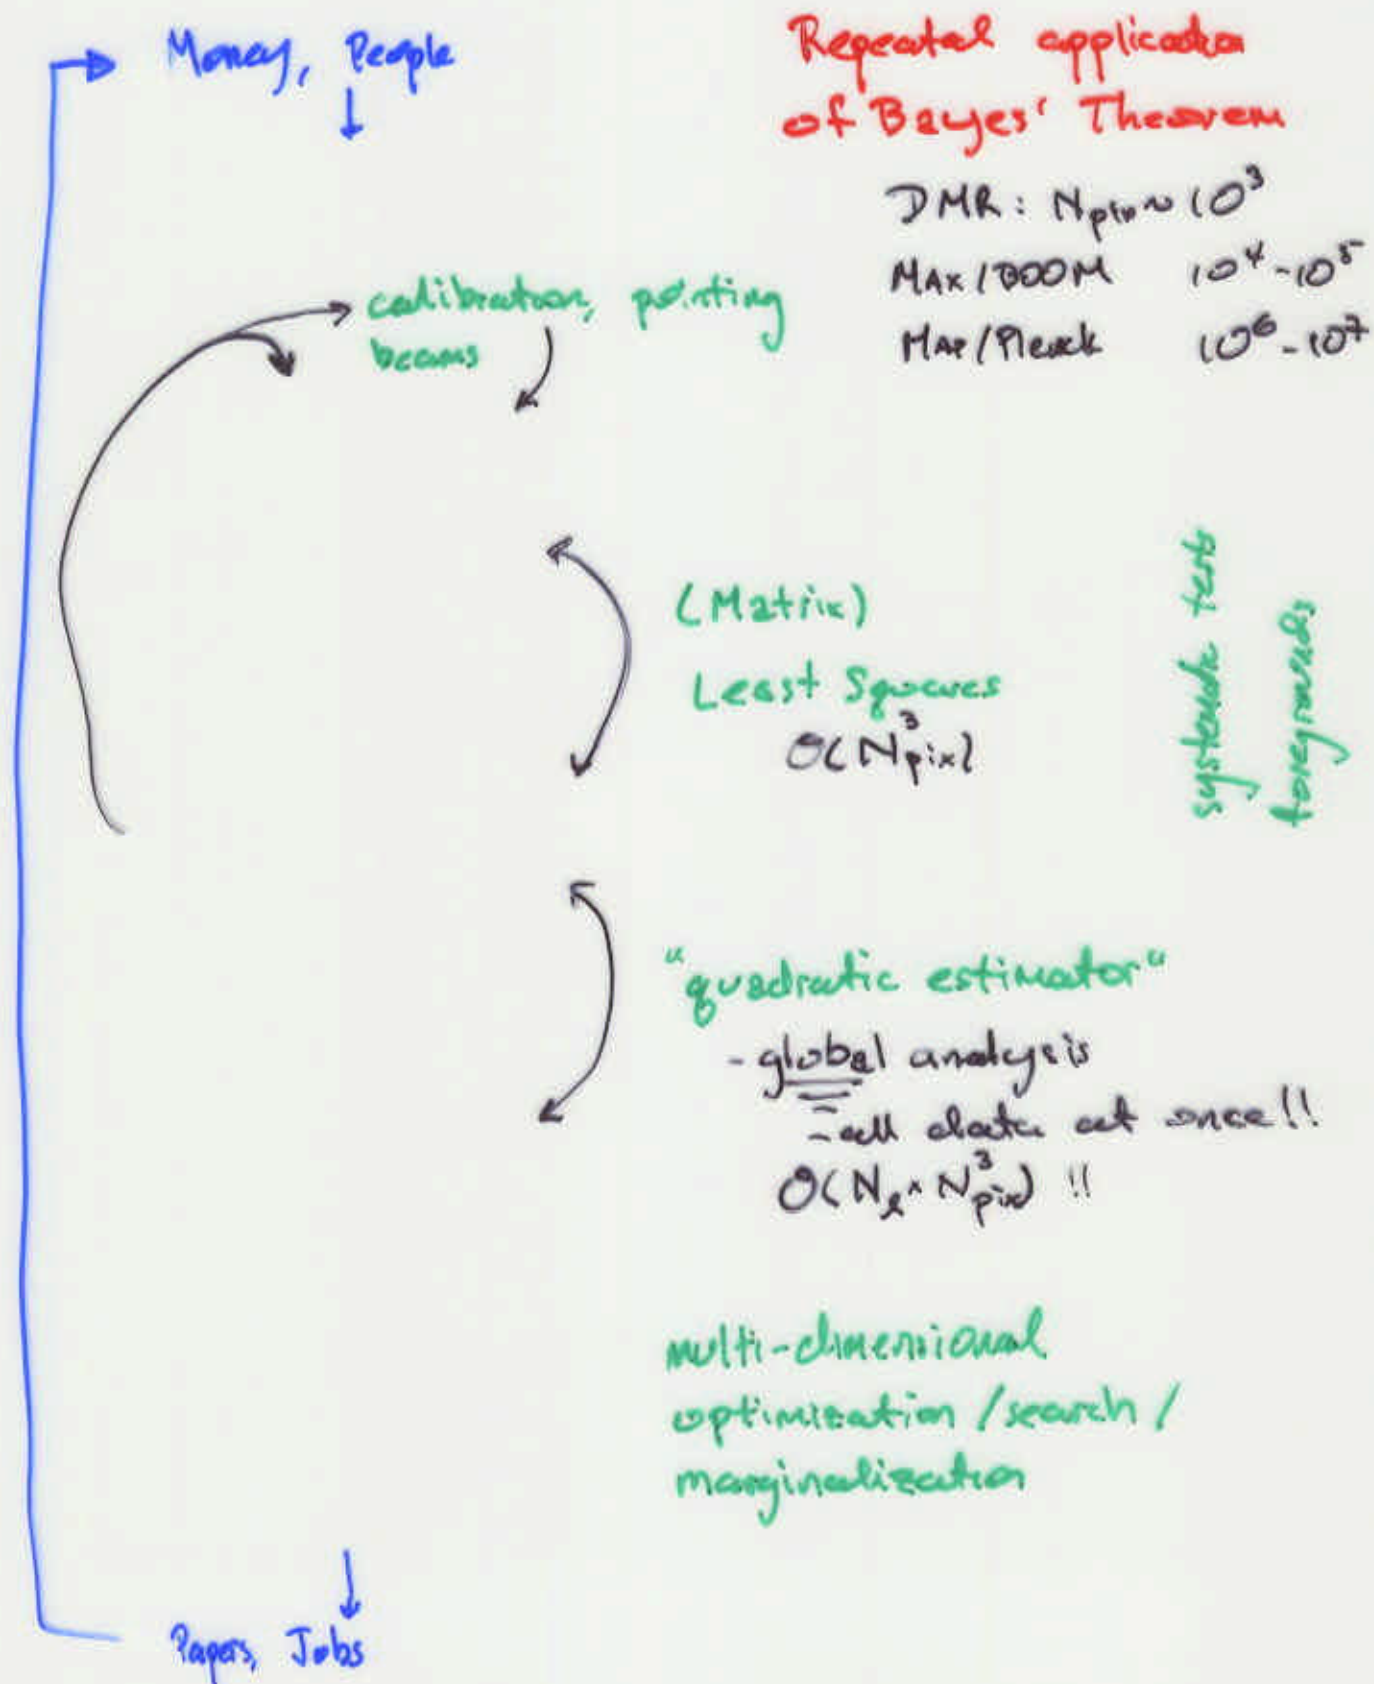 Money, People
Repeated application
of Bayes' Theorem
DMR: Npix ~ 10^3
MAX/BOOM 10^4-10^5
MAP/Planck 10^6-10^7
calibration, pointing
beams
(Matrix)
Least Squares
O(N^3pix)
systematic tests
foregrounds
"quadratic estimator"
- global analysis
- all data at once!!
O(Nℓ × N^3pix) !!
multi-dimensional
optimization/search/
marginalization
Papers, Jobs